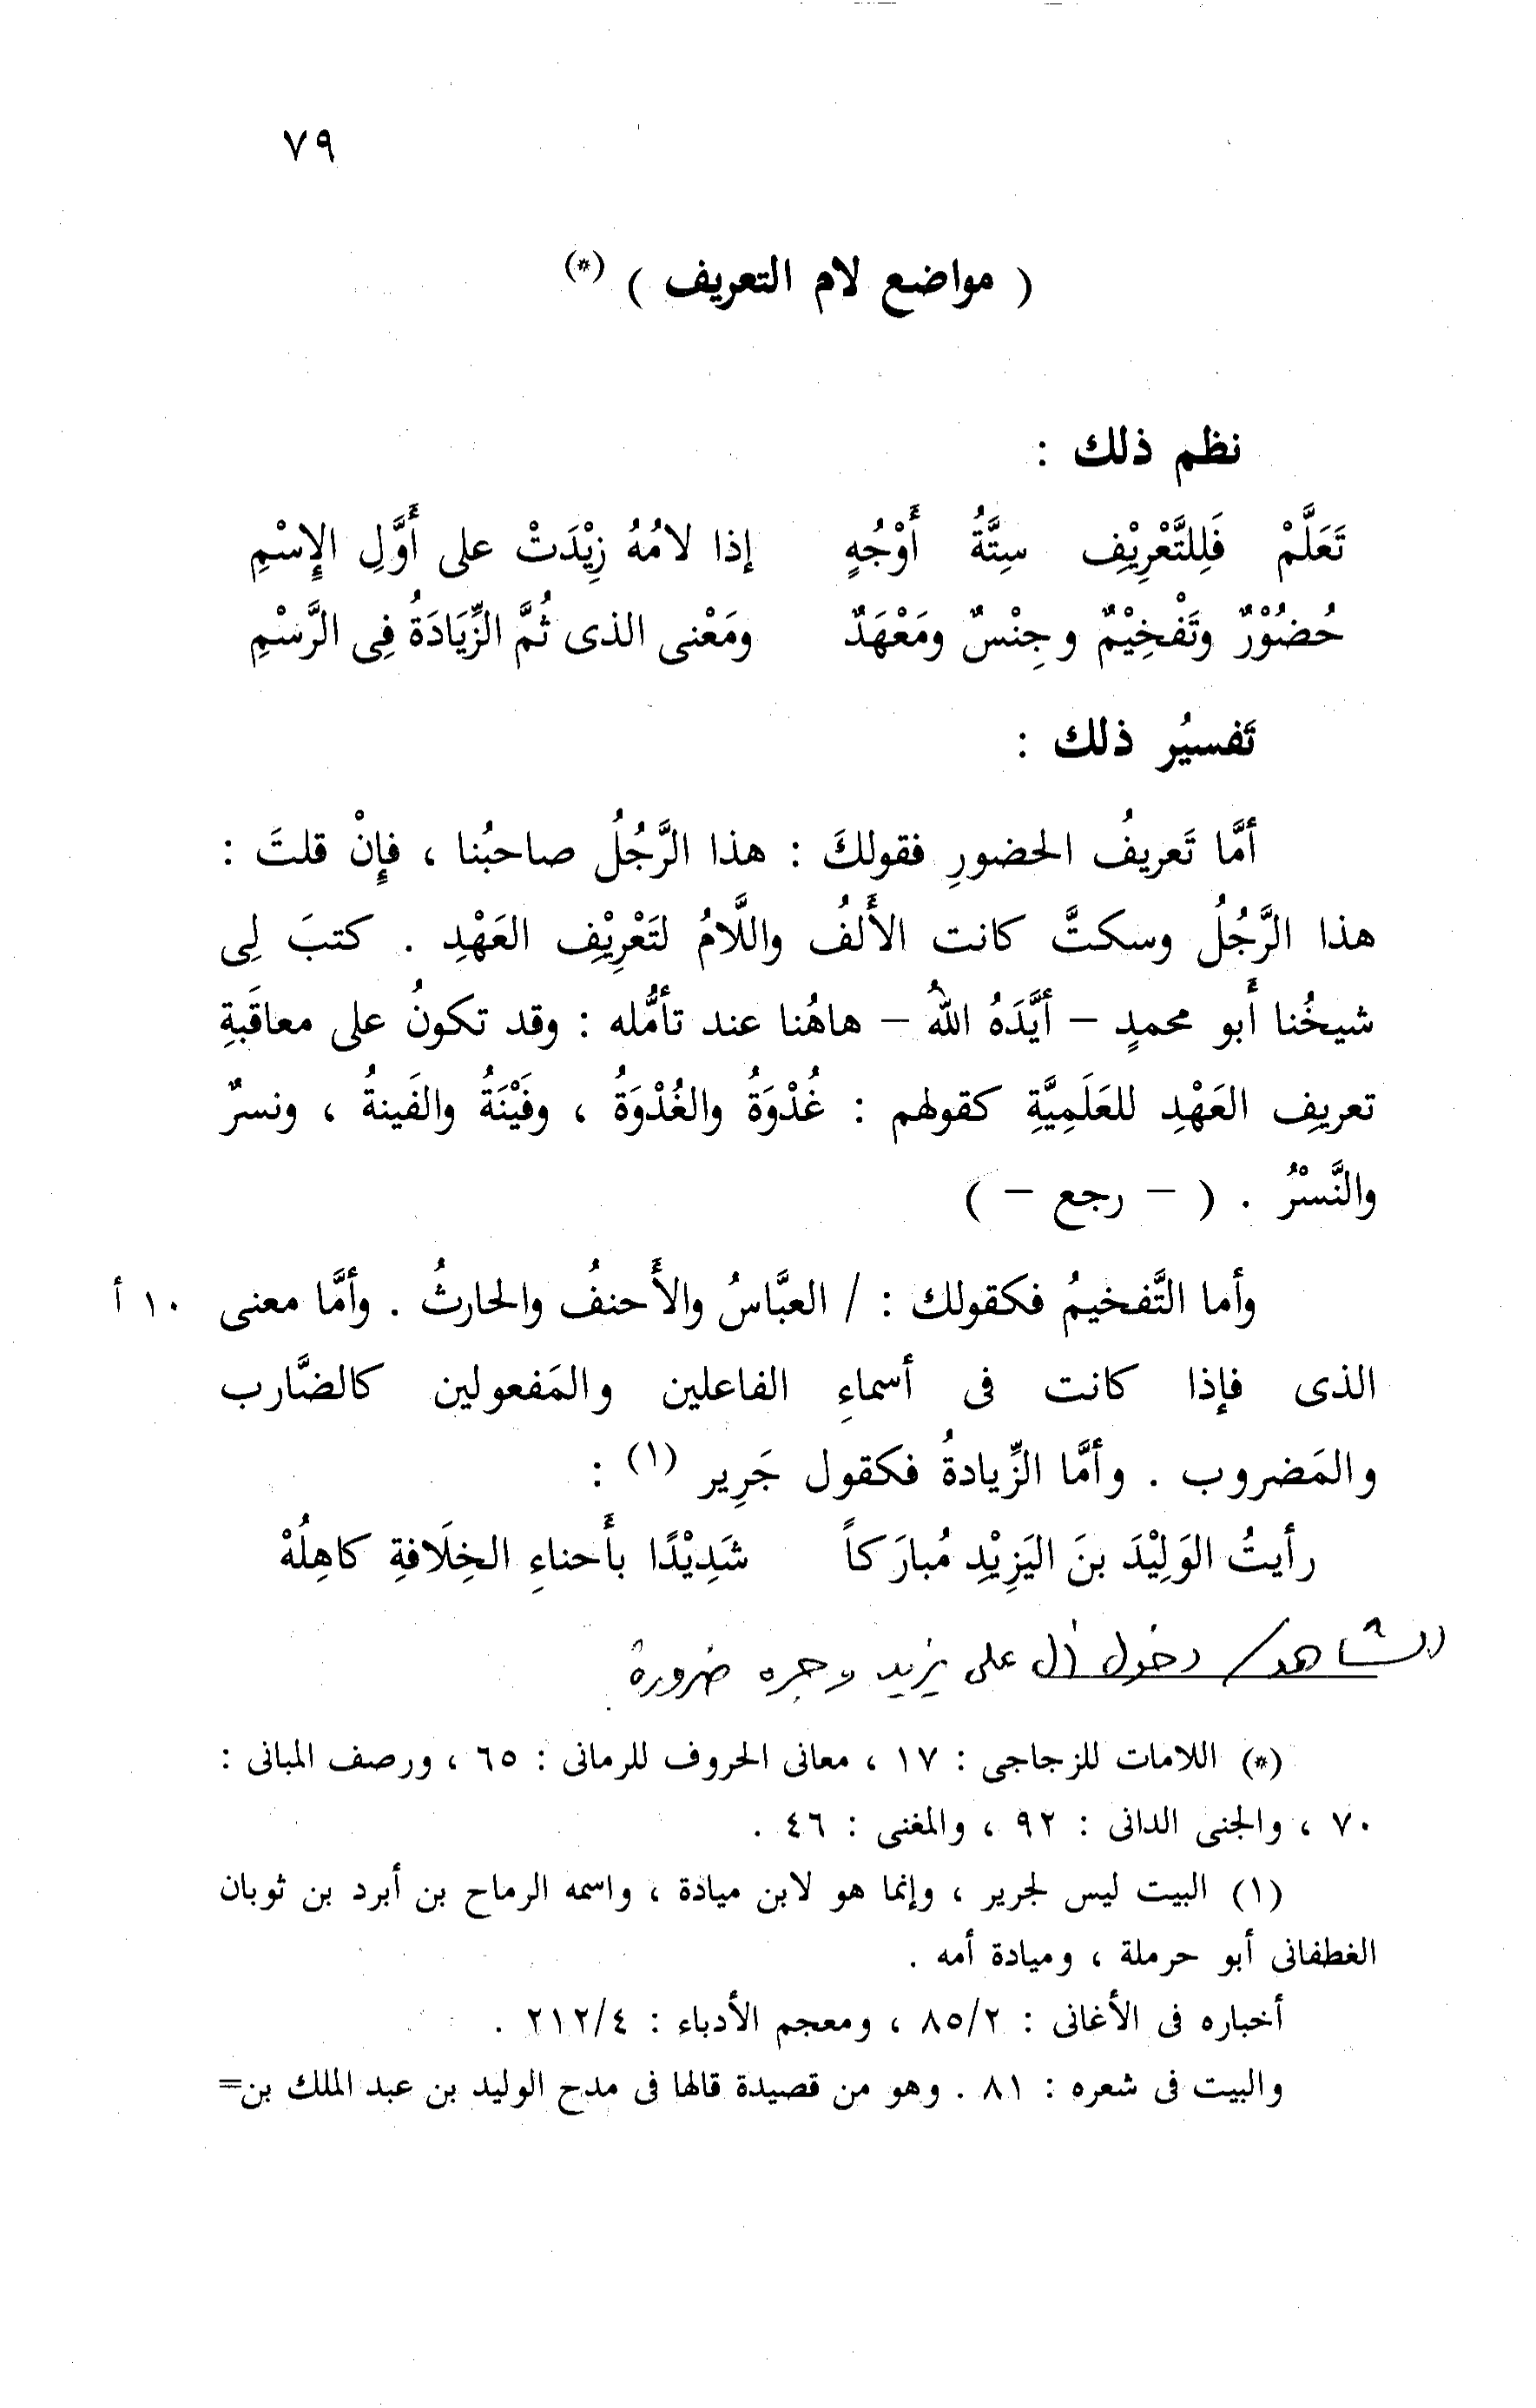 ٧٩
( مواضع لام التعريف ) (*)
نظم ذلك :
تَعَلَّمْ فَلِلتَّعْرِيْفِ سِتَّةُ أَوْجُهٍ إذا لامُهُ زِيْدَتْ على أَوَّلِ الإِسْمِ
حُضُوْرٌ وتَفْخِيْمٌ وجِنْسٌ ومَعْهَدٌ ومَعْنى الذى ثُمَّ الزِّيَادَةُ فِى الرَّسْمِ
تَفسيُر ذلك :
أمَّا تَعريفُ الحضورِ فقولكَ : هذا الرَّجُلُ صاحبُنا ، فإِنْ قلتَ :
هذا الرَّجُلُ وسكتَّ كانت الأَلفُ واللَّامُ لتَعْرِيْفِ العَهْدِ . كتبَ لِى
شيخُنا أبو محمدٍ - أيَّدَهُ اللهُ - هاهُنا عند تأمُّله : وقد تكونُ على معاقَبةِ
تعريفِ العَهْدِ للعَلَمِيَّةِ كقولهم : غُدْوَةُ والغُدْوَةُ ، وفَيْنَةُ والفَينةُ ، ونسرٌ
والنَّسْرُ . ( - رجع - )
وأما التَّفخيمُ فكقولك : / العبَّاسُ والأَحنفُ والحارثُ . وأمَّا معنى ١٠ أ
الذى فإذا كانت فى أسماءِ الفاعلين والمَفعولين كالضَّارب
والمَضروب . وأمَّا الزِّيادةُ فكقول جَرِير (١) :
رأيتُ الوَلِيْدَ بنَ اليَزِيْدِ مُبارَكاً شَدِيْدًا بأَحناءِ الخِلَافةِ كاهِلُهْ
الشاهد / دخول أل على يزيد وجره ضرورة
(*) اللامات للزجاجى : ١٧ ، معانى الحروف للرمانى : ٦٥ ، ورصف المبانى :
٧٠ ، والجنى الدانى : ٩٢ ، والمغنى : ٤٦ .
(١) البيت ليس لجرير ، وإنما هو لابن ميادة ، واسمه الرماح بن أبرد بن ثوبان
الغطفانى أبو حرملة ، وميادة أمه .
أخباره فى الأغانى : ٨٥/٢ ، ومعجم الأدباء : ٢١٢/٤ .
والبيت فى شعره : ٨١ . وهو من قصيدة قالها فى مدح الوليد بن عبد الملك بن=